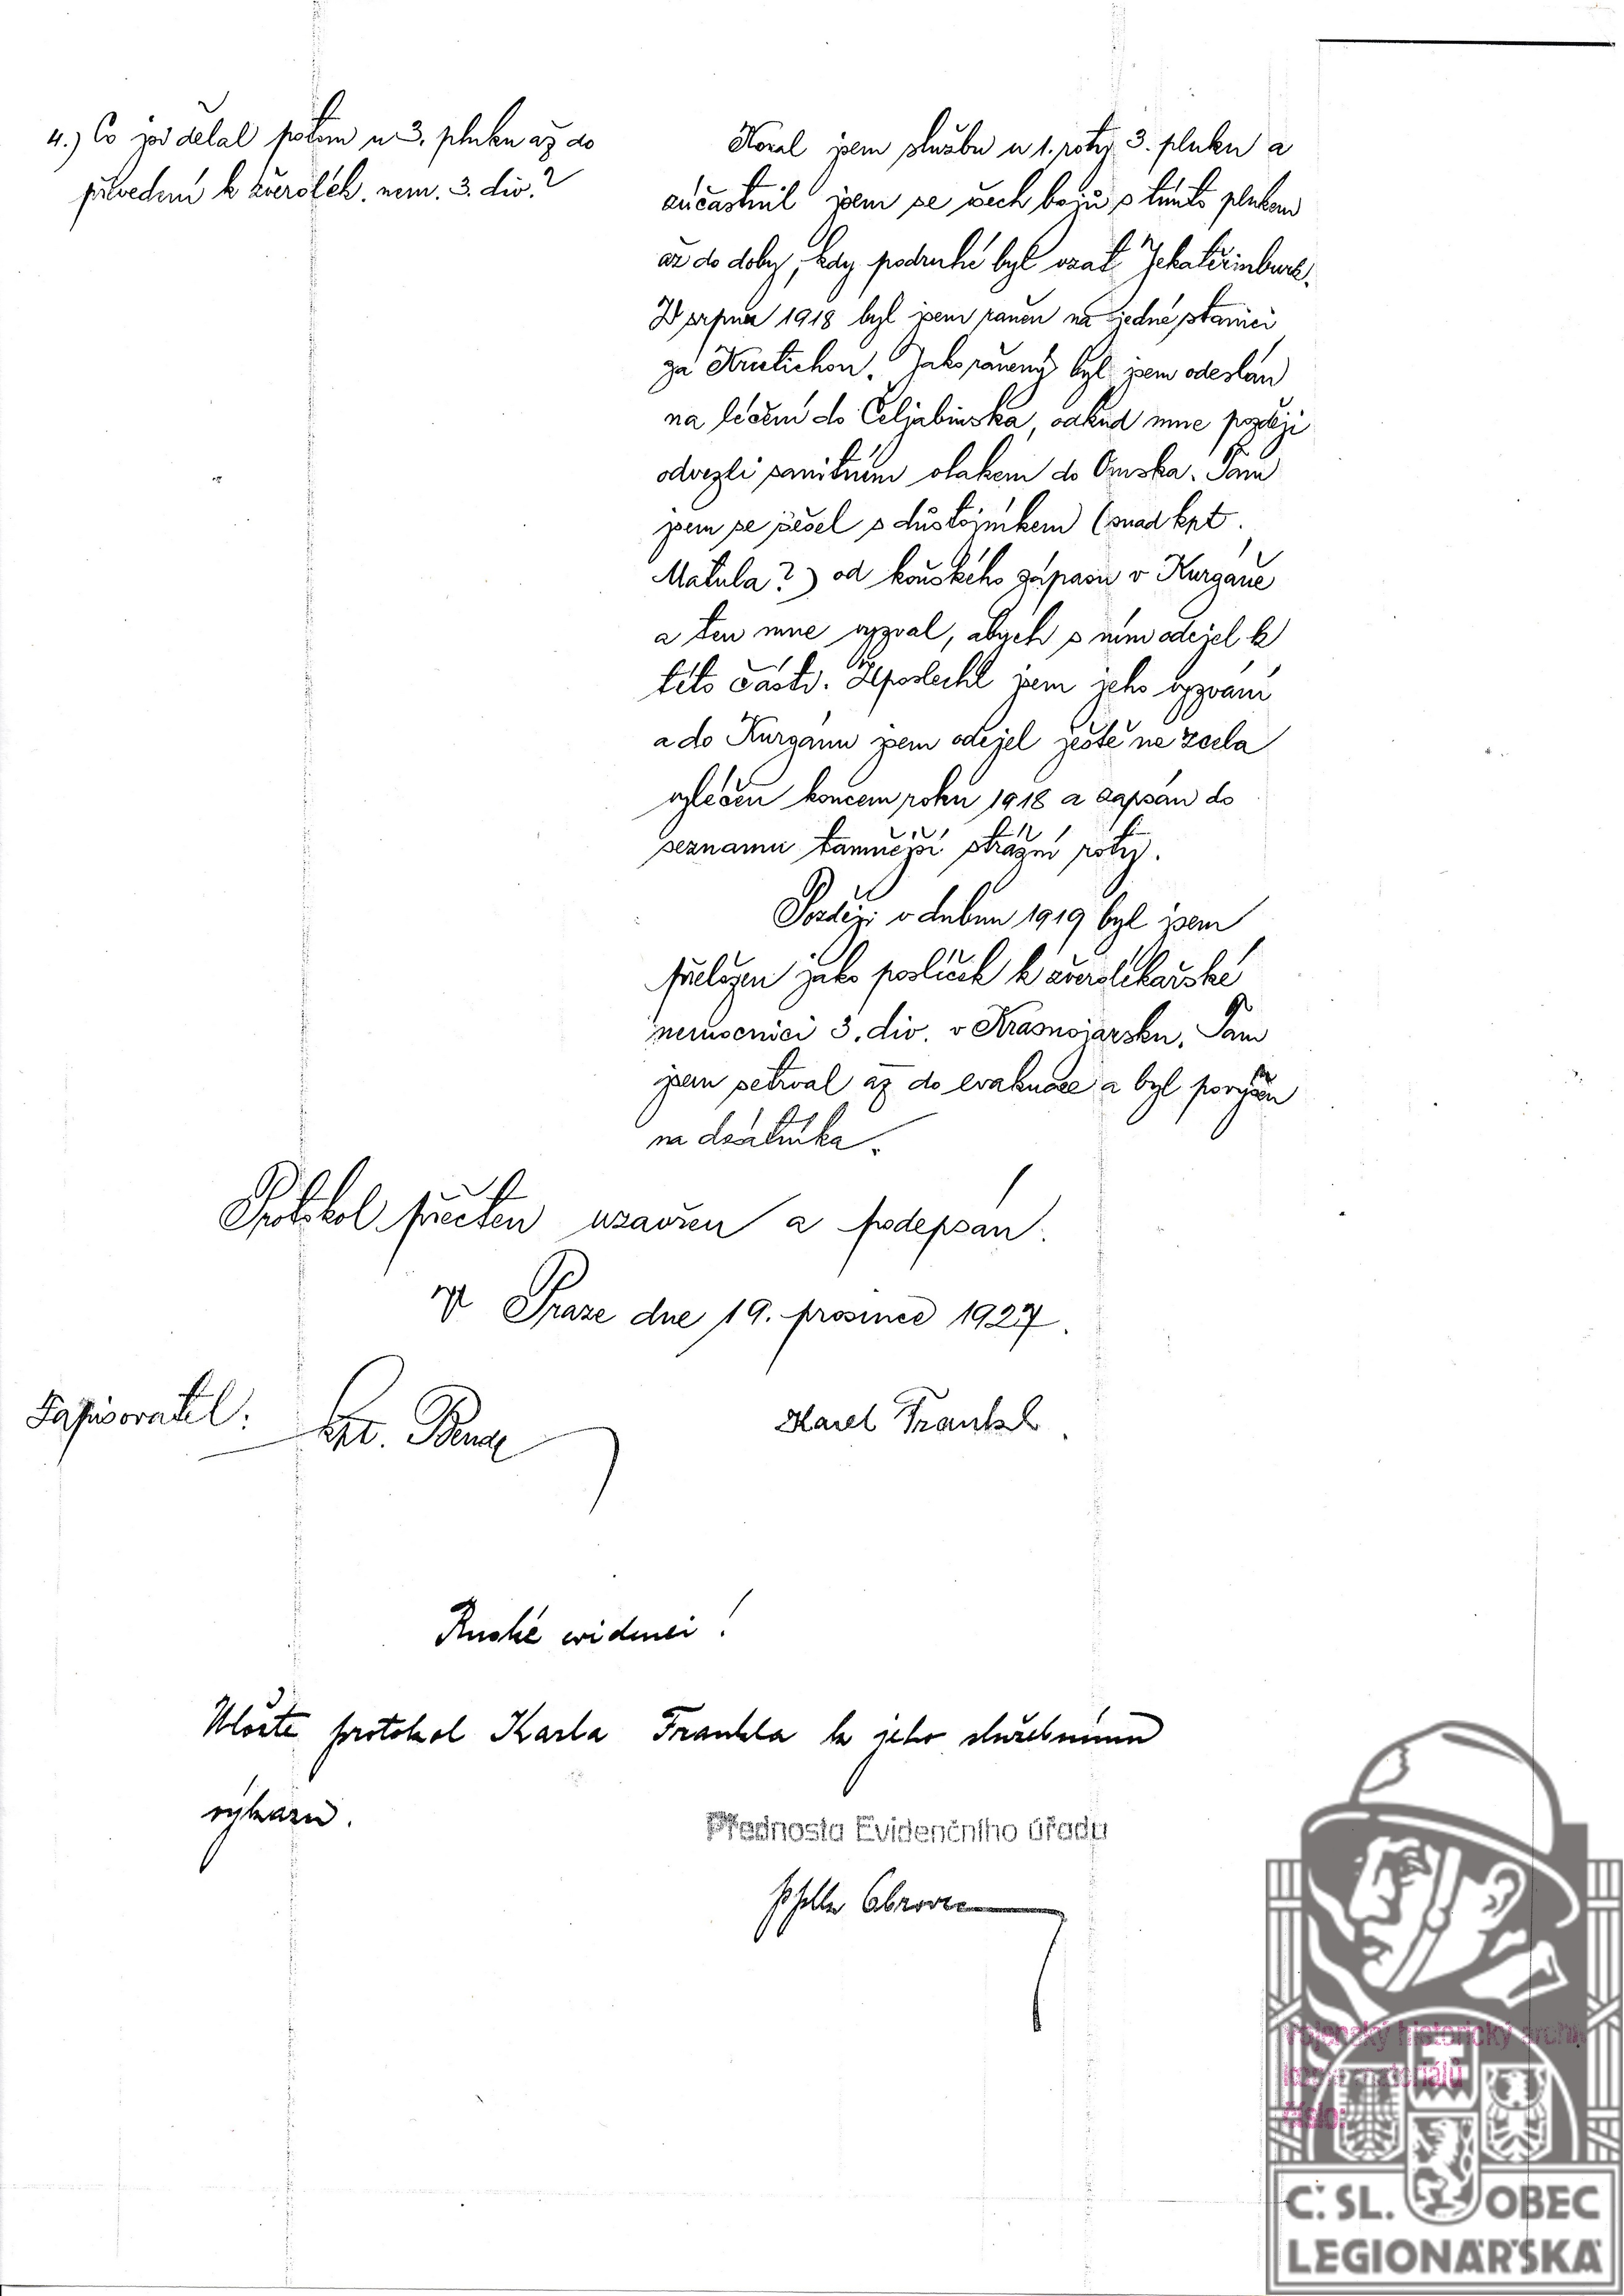 4.) Co jste dělal potom u 3. pluku až do
přivedení k zvěrolék. nem. 3. div.?
Konal jsem službu u 1. roty 3. pluku a
zúčastnil jsem se všech bojů s tímto plukem
až do doby, kdy podruhé byl vzat Jekatěrinburk.
V srpnu 1918 byl jsem raněn na jedné stanici
za Krutichou. Jako raněný byl jsem odeslán
na léčení do Čeljabinska, odkud mne později
odvezli sanitním vlakem do Omska. Tam
jsem se sešel s důstojníkem (snad kpt.
Matula?) od koňského zápasu v Kurganě
a ten mne vyzval, abych s ním odejel k
této části. Uposlechl jsem jeho vyzvání
a do Kurganu jsem odejel ještě ne zcela
vyléčen koncem roku 1918 a zapsán do
seznamu tamnější strážní roty.
Později v dubnu 1919 byl jsem
přeložen jako poslíček k zvěrolékařské
nemocnici 3. div. v Krasnojarsku. Tam
jsem setrval až do evakuace a byl povýšen
na desátníka.
Protokol přečten uzavřen a podepsán.
V Praze dne 19. prosince 1927.
Zapisovatel: kpt. Karel Frankl
Ruské evidenci!
Uložte protokol Karla Frankla k jeho služebnímu
výkazu.
Přednosta Evidenčního úřadu
Vojenský historický archiv
kopie materiálů
číslo:
Č. SL. OBEC
LEGIONÁŘSKÁ